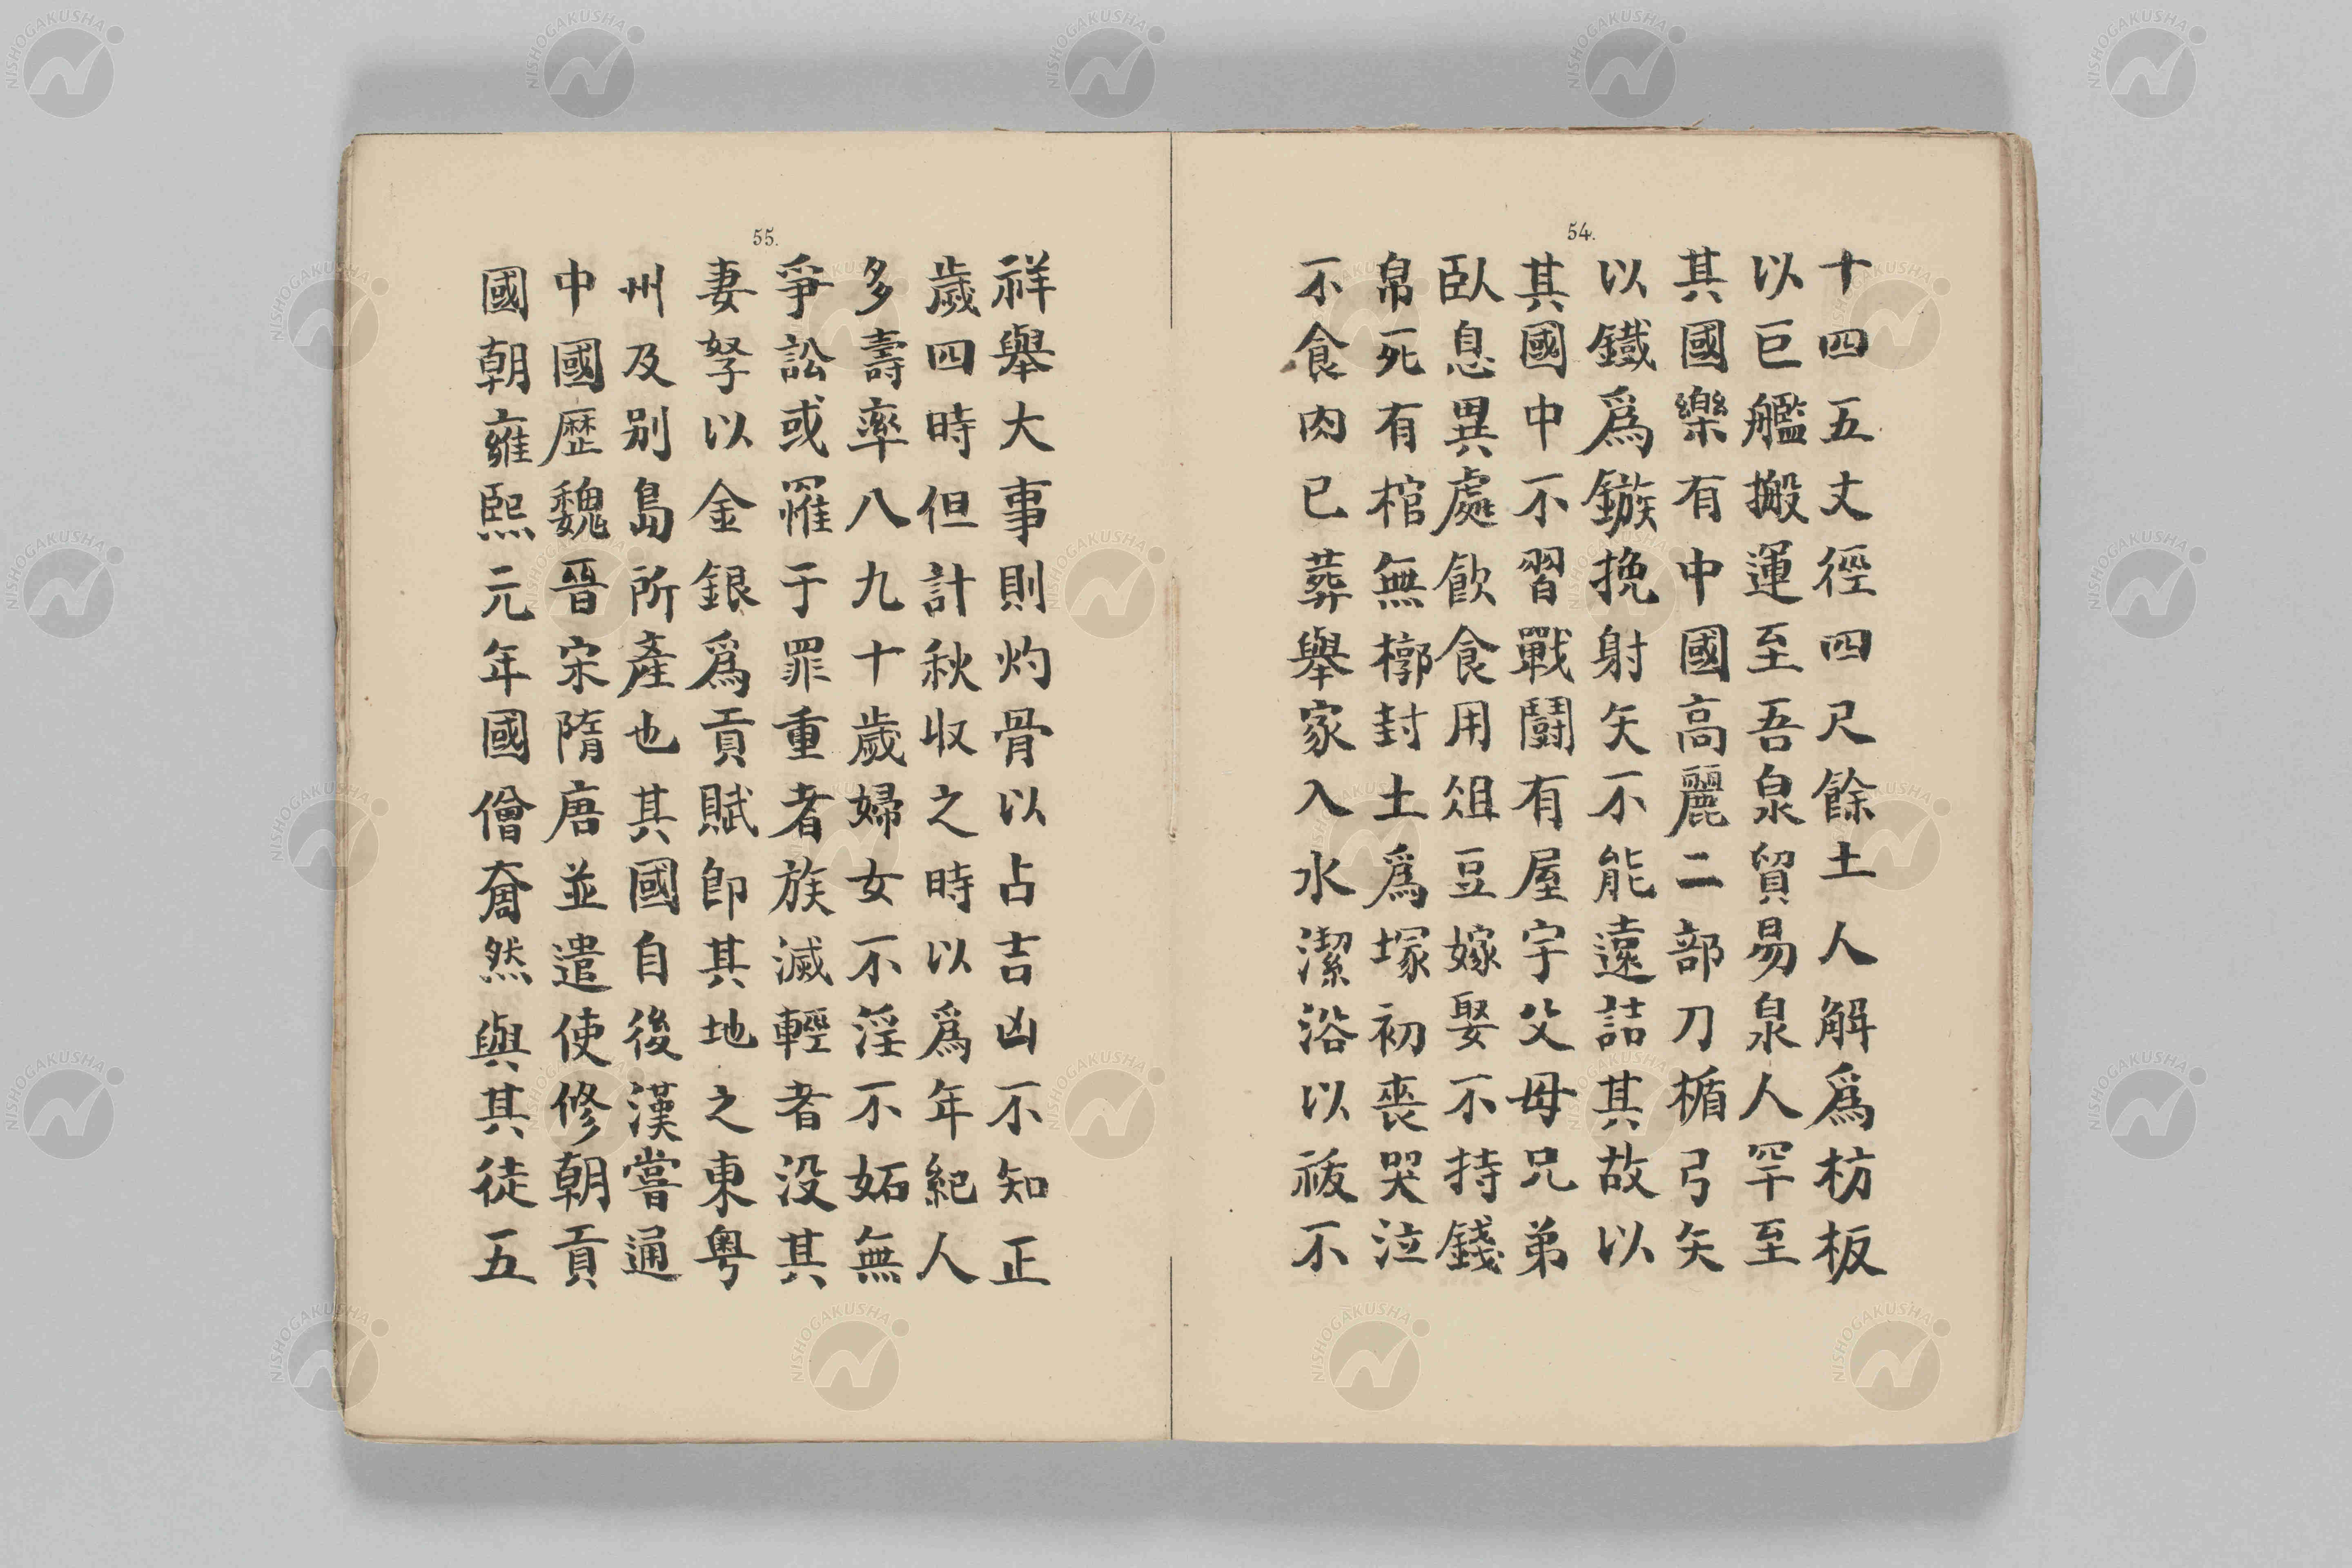 54.
十四五丈徑四尺餘土人解爲枋板
以巨艦搬運至吾泉貿易泉人罕至
其國樂有中國高麗二部刀楯弓矢
以鐵爲鏃挽射矢不能遠詰其故以
其國中不習戰鬪有屋宇父母兄弟
臥息異處飲食用俎豆嫁娶不持錢
帛死有棺無槨封土爲塚初喪哭泣
不食肉已葬舉家入水潔浴以祓不
55.
祥舉大事則灼骨以占吉凶不知正
歲四時但計秋收之時以爲年紀人
多壽率八九十歲婦女不淫不妬無
爭訟或罹于罪重者族滅輕者没其
妻孥以金銀爲貢賦卽其地之東粤
州及别島所產也其國自後漢嘗通
中國歷魏晉宋隋唐並遣使修朝貢
國朝雍熙元年國僧奝然與其徒五
NISHOGAKUSHA